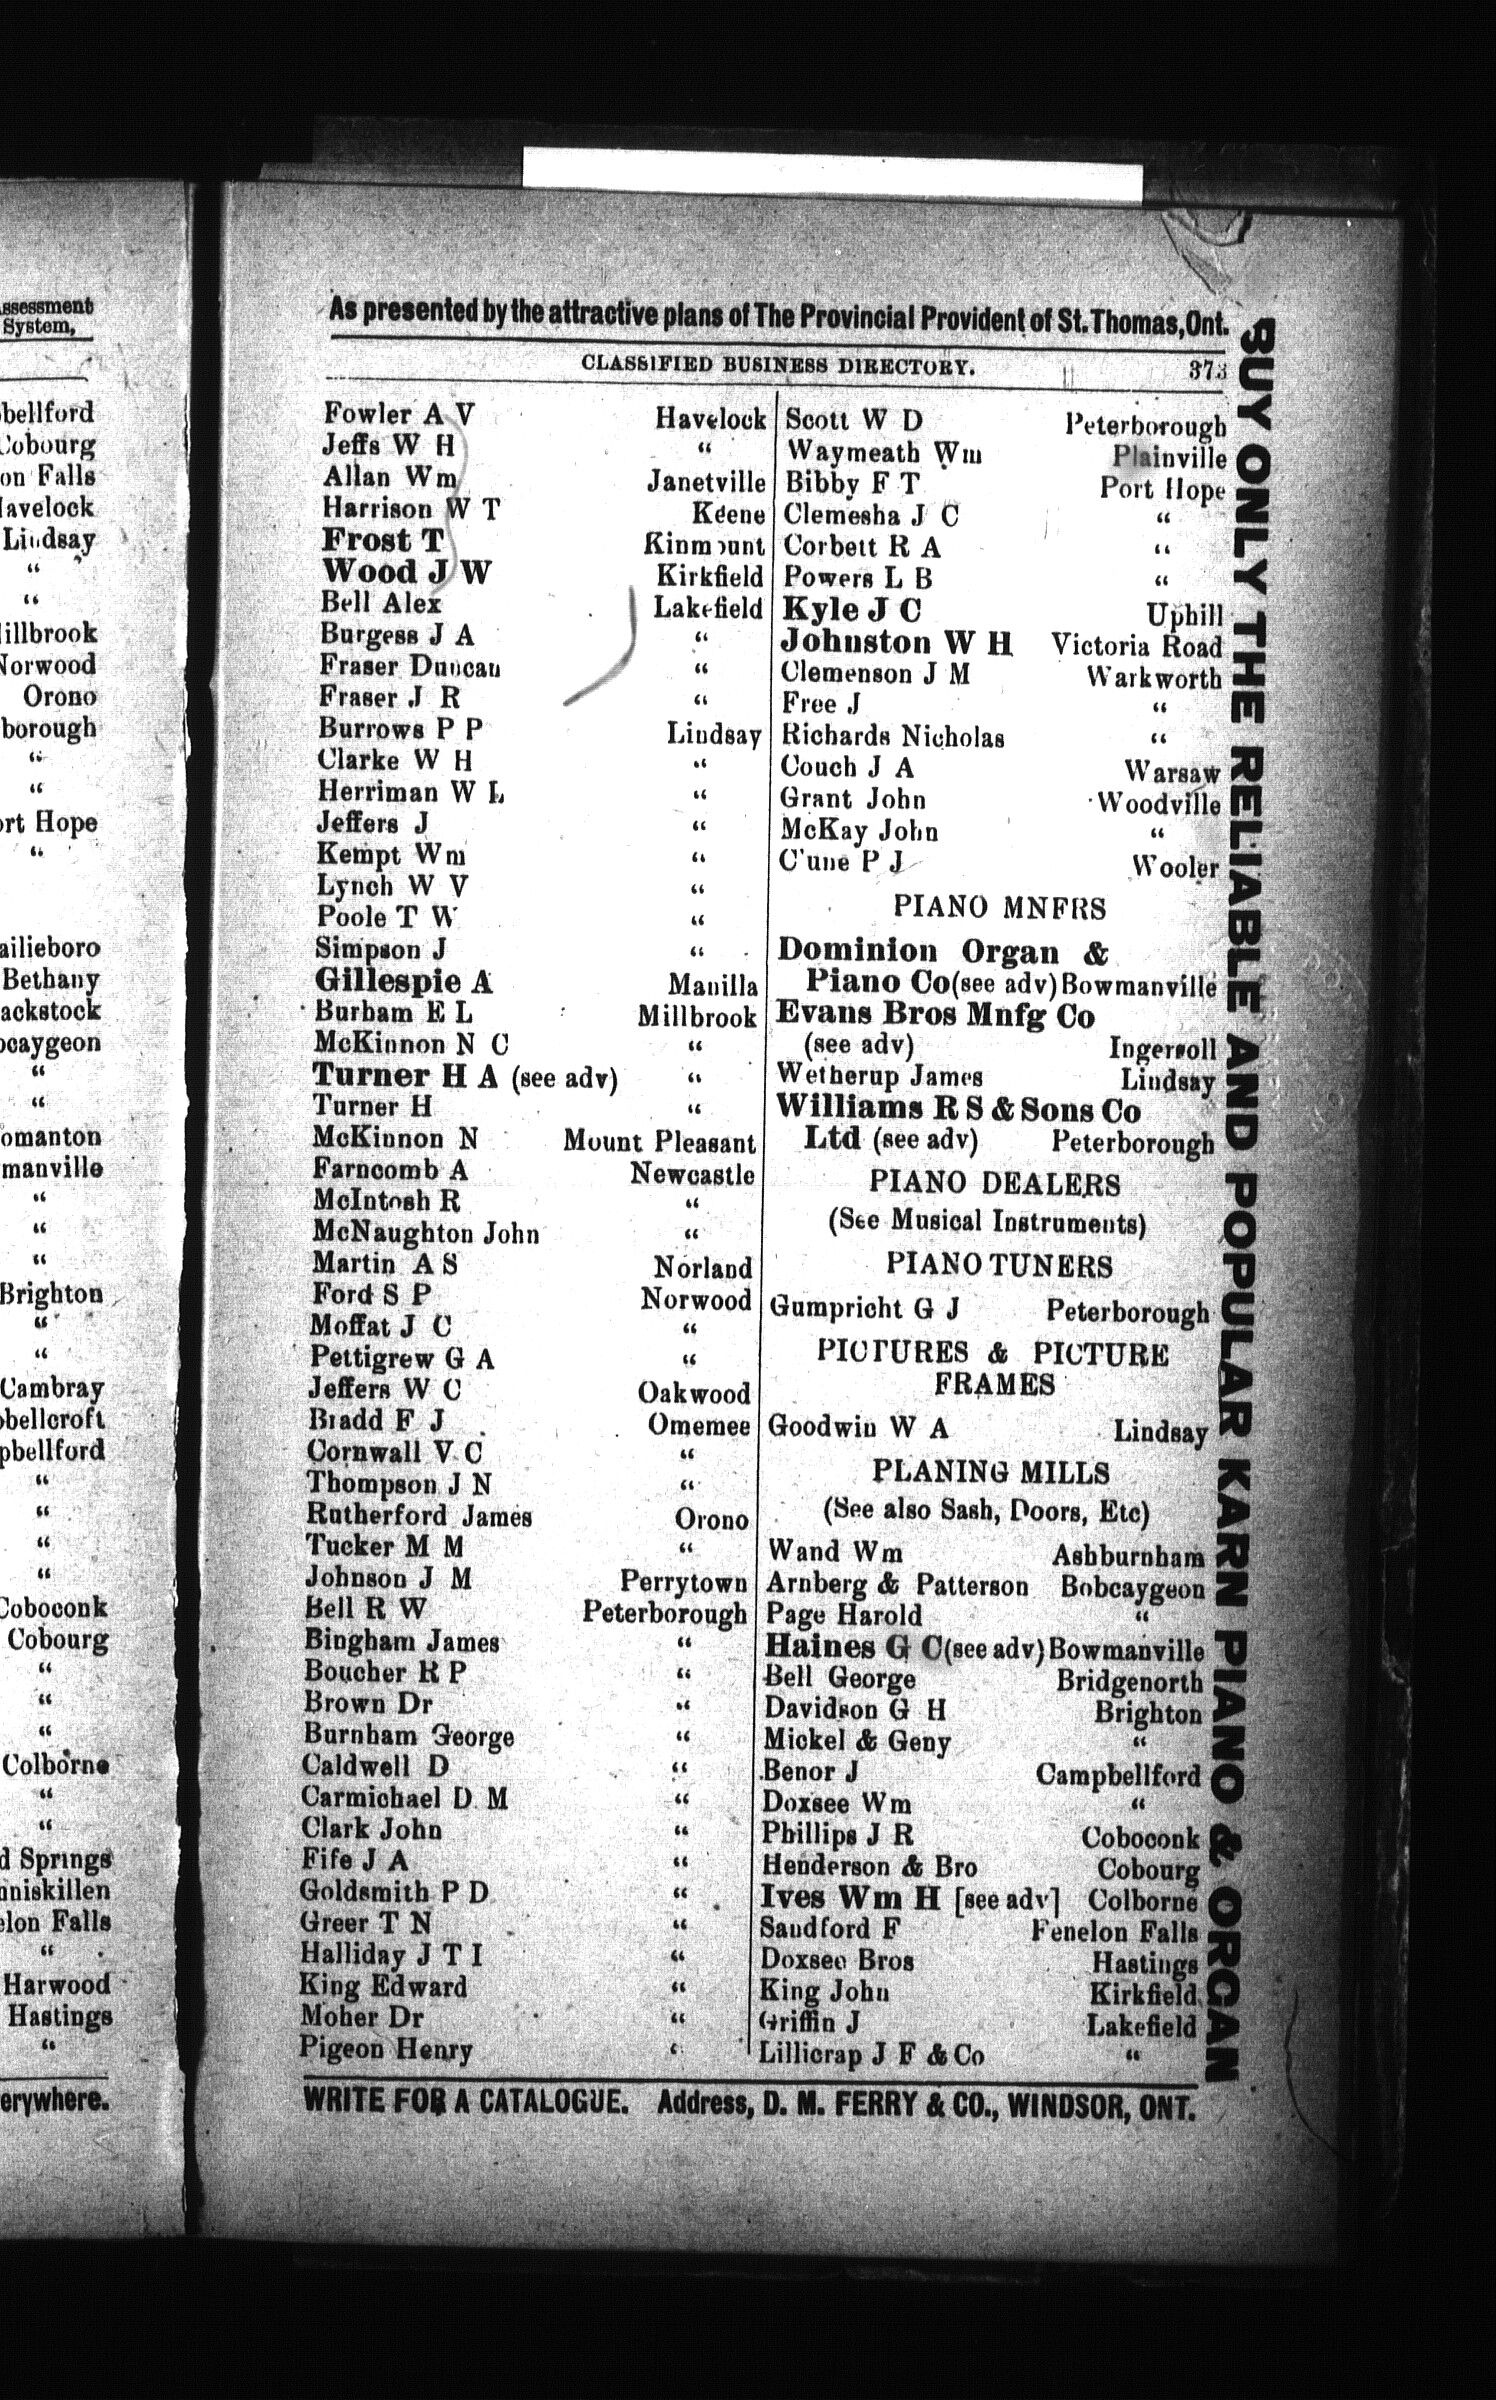 ssessment
System,
bellford
Cobourg
on Falls
avelock
Lindsay
“
“
illbrook
Norwood
Orono
borough
“
“
ort Hope
“
ailieboro
Bethany
ackstock
ocaygeon
“
“
omanton
manville
“
“
“
Brighton
“
“
Cambray
bellcroft
pbellford
“
“
“
“
Coboconk
Cobourg
“
“
“
Colborne
“
“
d Springs
nniskillen
elon Falls
“
Harwood
Hastings
“
erywhere.
As presented by the attractive plans of The Provincial Provident of St. Thomas, Ont.
CLASSIFIED BUSINESS DIRECTORY. 373
Fowler A V Havelock
Jeffs W H “
Allan Wm Janetville
Harrison W T Keene
Frost T Kinmount
Wood J W Kirkfield
Bell Alex Lakefield
Burgess J A “
Fraser Duncan “
Fraser J R “
Burrows P P Lindsay
Clarke W H “
Herriman W L “
Jeffers J “
Kempt Wm “
Lynch W V “
Poole T W “
Simpson J “
Gillespie A Manilla
Burham E L Millbrook
McKinnon N C “
Turner H A (see adv) “
Turner H “
McKinnon N Mount Pleasant
Farncomb A Newcastle
McIntosh R “
McNaughton John “
Martin A S Norland
Ford S P Norwood
Moffat J C “
Pettigrew G A “
Jeffers W C Oakwood
Bradd F J Omemee
Cornwall V C “
Thompson J N “
Rutherford James Orono
Tucker M M “
Johnson J M Perrytown
Bell R W Peterborough
Bingham James “
Boucher R P “
Brown Dr “
Burnham George “
Caldwell D “
Carmichael D M “
Clark John “
Fife J A “
Goldsmith P D “
Greer T N “
Halliday J T I “
King Edward “
Moher Dr “
Pigeon Henry “
Scott W D Peterborough
Waymeath Wm Plainville
Bibby F T Port Hope
Clemesha J C “
Corbett R A “
Powers L B “
Kyle J C Uphill
Johnston W H Victoria Road
Clemenson J M Warkworth
Free J “
Richards Nicholas “
Couch J A Warsaw
Grant John Woodville
McKay John “
C'une P J Wooler
PIANO MNFRS
Dominion Organ &
Piano Co (see adv) Bowmanville
Evans Bros Mnfg Co
(see adv) Ingersoll
Wetherup James Lindsay
Williams R S & Sons Co
Ltd (see adv) Peterborough
PIANO DEALERS
(See Musical Instruments)
PIANO TUNERS
Gumpricht G J Peterborough
PICTURES & PICTURE
FRAMES
Goodwin W A Lindsay
PLANING MILLS
(See also Sash, Doors, Etc)
Wand Wm Ashburnham
Arnberg & Patterson Bobcaygeon
Page Harold “
Haines G C (see adv) Bowmanville
Bell George Bridgenorth
Davidson G H Brighton
Mickel & Geny “
Benor J Campbellford
Doxsee Wm “
Phillips J R Coboconk
Henderson & Bro Cobourg
Ives Wm H [see adv] Colborne
Sandford F Fenelon Falls
Doxsee Bros Hastings
King John Kirkfield
Griffin J Lakefield
Lillicrap J F & Co “
WRITE FOR A CATALOGUE. Address, D. M. FERRY & CO., WINDSOR, ONT.
BUY ONLY THE RELIABLE AND POPULAR KARN PIANO & ORGAN